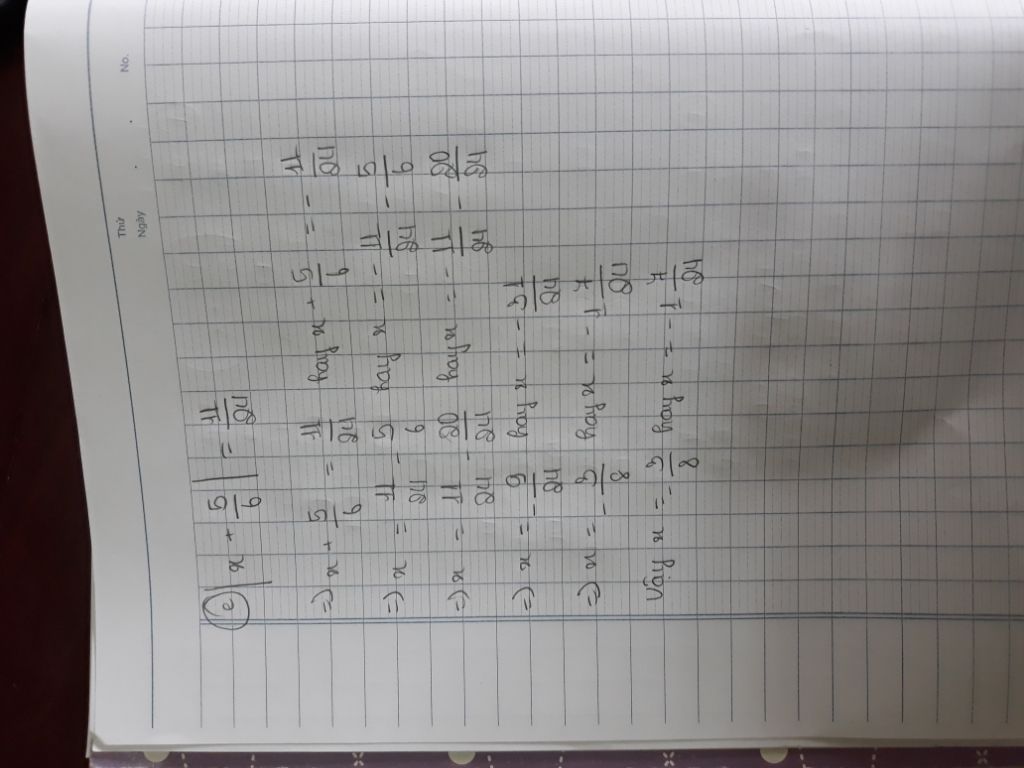 No.
Thứ
Ngày
e) |x + 5/6| = 11/24
=> x + 5/6 = 11/24 hay x + 5/6 = - 11/24
=> x = 11/24 - 5/6 hay x = - 11/24 - 5/6
=> x = 11/24 - 20/24 hay x = - 11/24 - 20/24
=> x = - 9/24 hay x = - 31/24
=> x = - 3/8 hay x = - 1 7/24
Vậy x = - 3/8 hay x = - 1 7/24